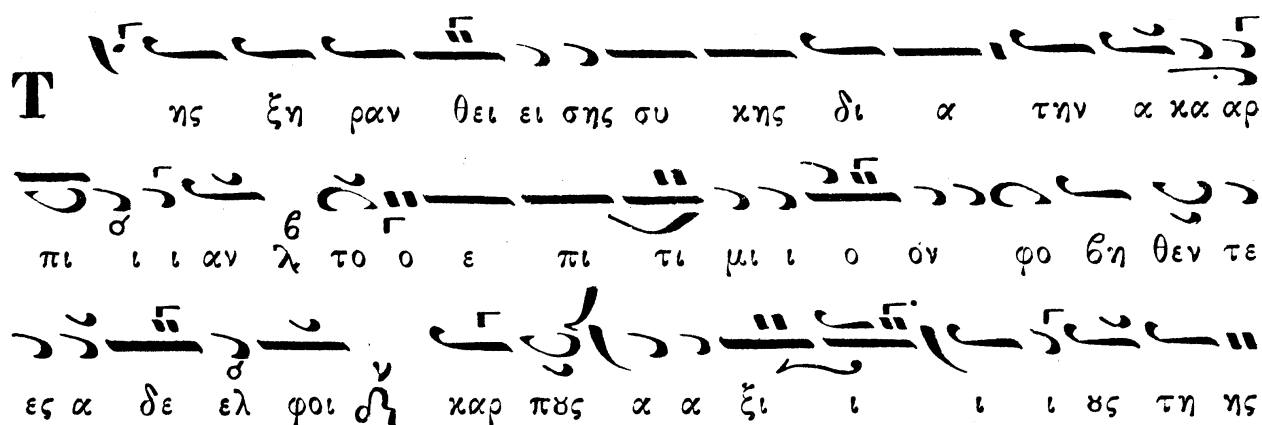 Τ ης ξη ραν θει ει σης συ κης δι α την α κα αρ
πι ι ι αν λ το ο ε πι τι μι ι ο όν φο βη θεν τε
ες α δε ελ φοι καρ πȣς α α ξι ι ι ι ȣς τη ης